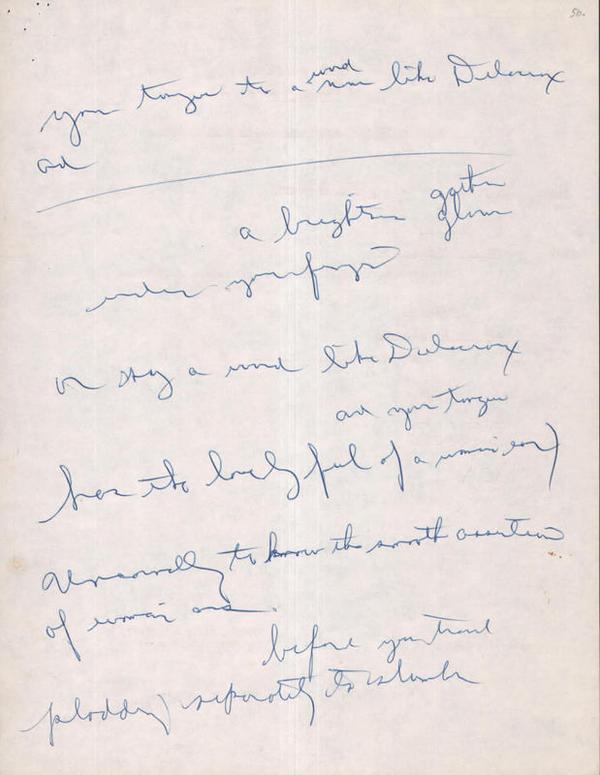 50.
word
your tongue to a like Delacroix
and
a brighter
glow
under your finger
or say a word like Delacroix
and your tongue
has the lovely feel of a woman's ear)
to know the smooth assertion
of woman's
before you travel
plodding separately to slumber